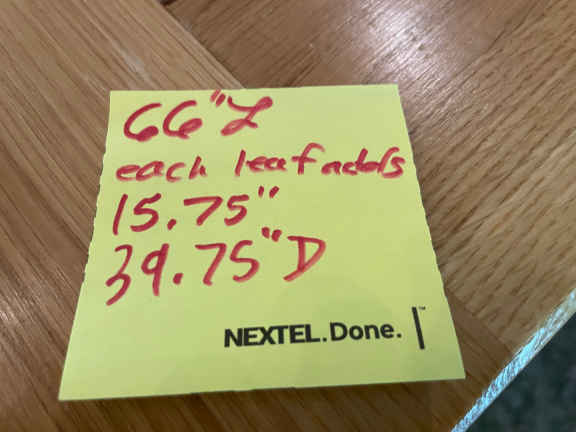 66"L
each leaf adds
15.75"
39.75"D
NEXTEL.Done.™